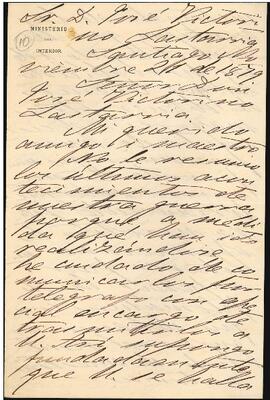 Sr. D. José Victori
no Lastarria
MINISTERIO
DEL
INTERIOR
10
Santiago, No
viembre 24 de 1879
Señor Don
José Victorino
Lastarria
Mi querido
amigo i maestro
No le resumo
los últimos acon
tecimientos de
nuestra guerra
porque a medi
da que han ido
realizándose
he cuidado de co
municarlos por
telégrafo con
encargo de
trasmitirlos a
U. Así supongo
fundadamente
que U. se halla